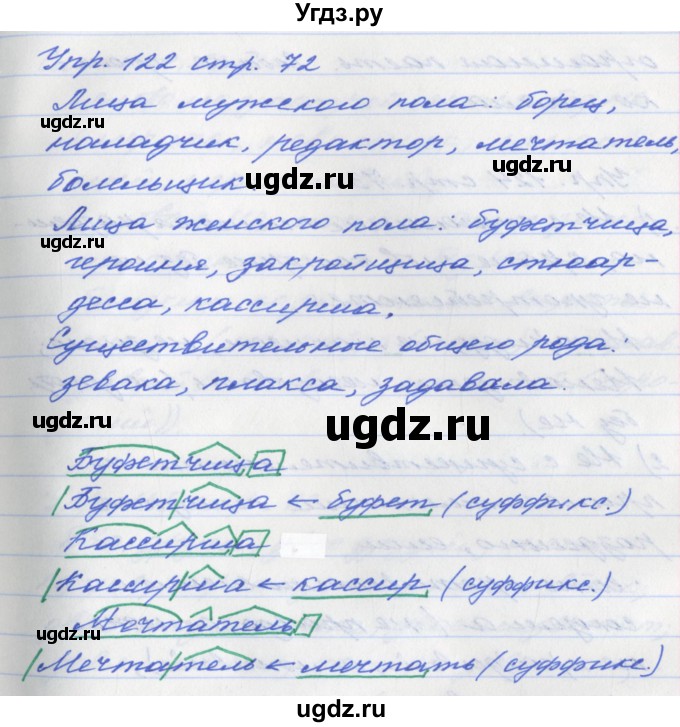 Угдз.ру
Упр. 122 стр. 72
Лица мужского пола: борец,
наладчик, редактор, мечтатель,
болельщик.
Лица женского пола: буфетчица,
героиня, закройщица, стюар-
десса, кассирша.
Существительные общего рода:
зевака, плакса, задавала.
Буфетчица.
Буфетчица ← буфет (суффикс.)
Кассирша
Кассирша ← кассир (суффикс.)
Мечтатель
Мечтатель ← мечтать (суффикс.)
ugdz.ru
ugdz.ru
ugdz.ru
ugdz.ru
ugdz.ru
ugdz.ru
ugdz.ru
ugdz.ru
ugdz.ru
ugdz.ru
ugdz.ru
ugdz.ru